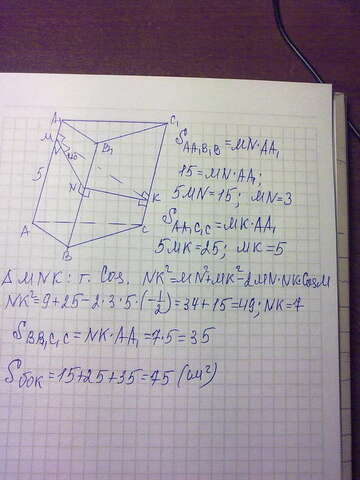 A₁
C₁
M
120
B₁
5
N
K
A
C
B
S_AA₁B₁B = MN·AA₁
15 = MN·AA₁;
5MN = 15; MN = 3
S_AA₁C₁C = MK·AA₁
5MK = 25; MK = 5
Δ MNK: т. Cos. NK² = MN² + MK² - 2MN·NK·CosM
NK² = 9 + 25 - 2·3·5·(-1/2) = 34 + 15 = 49; NK = 7
S_BB₁C₁C = NK·AA₁ = 7·5 = 35
S_бок = 15 + 25 + 35 = 75 (см²)